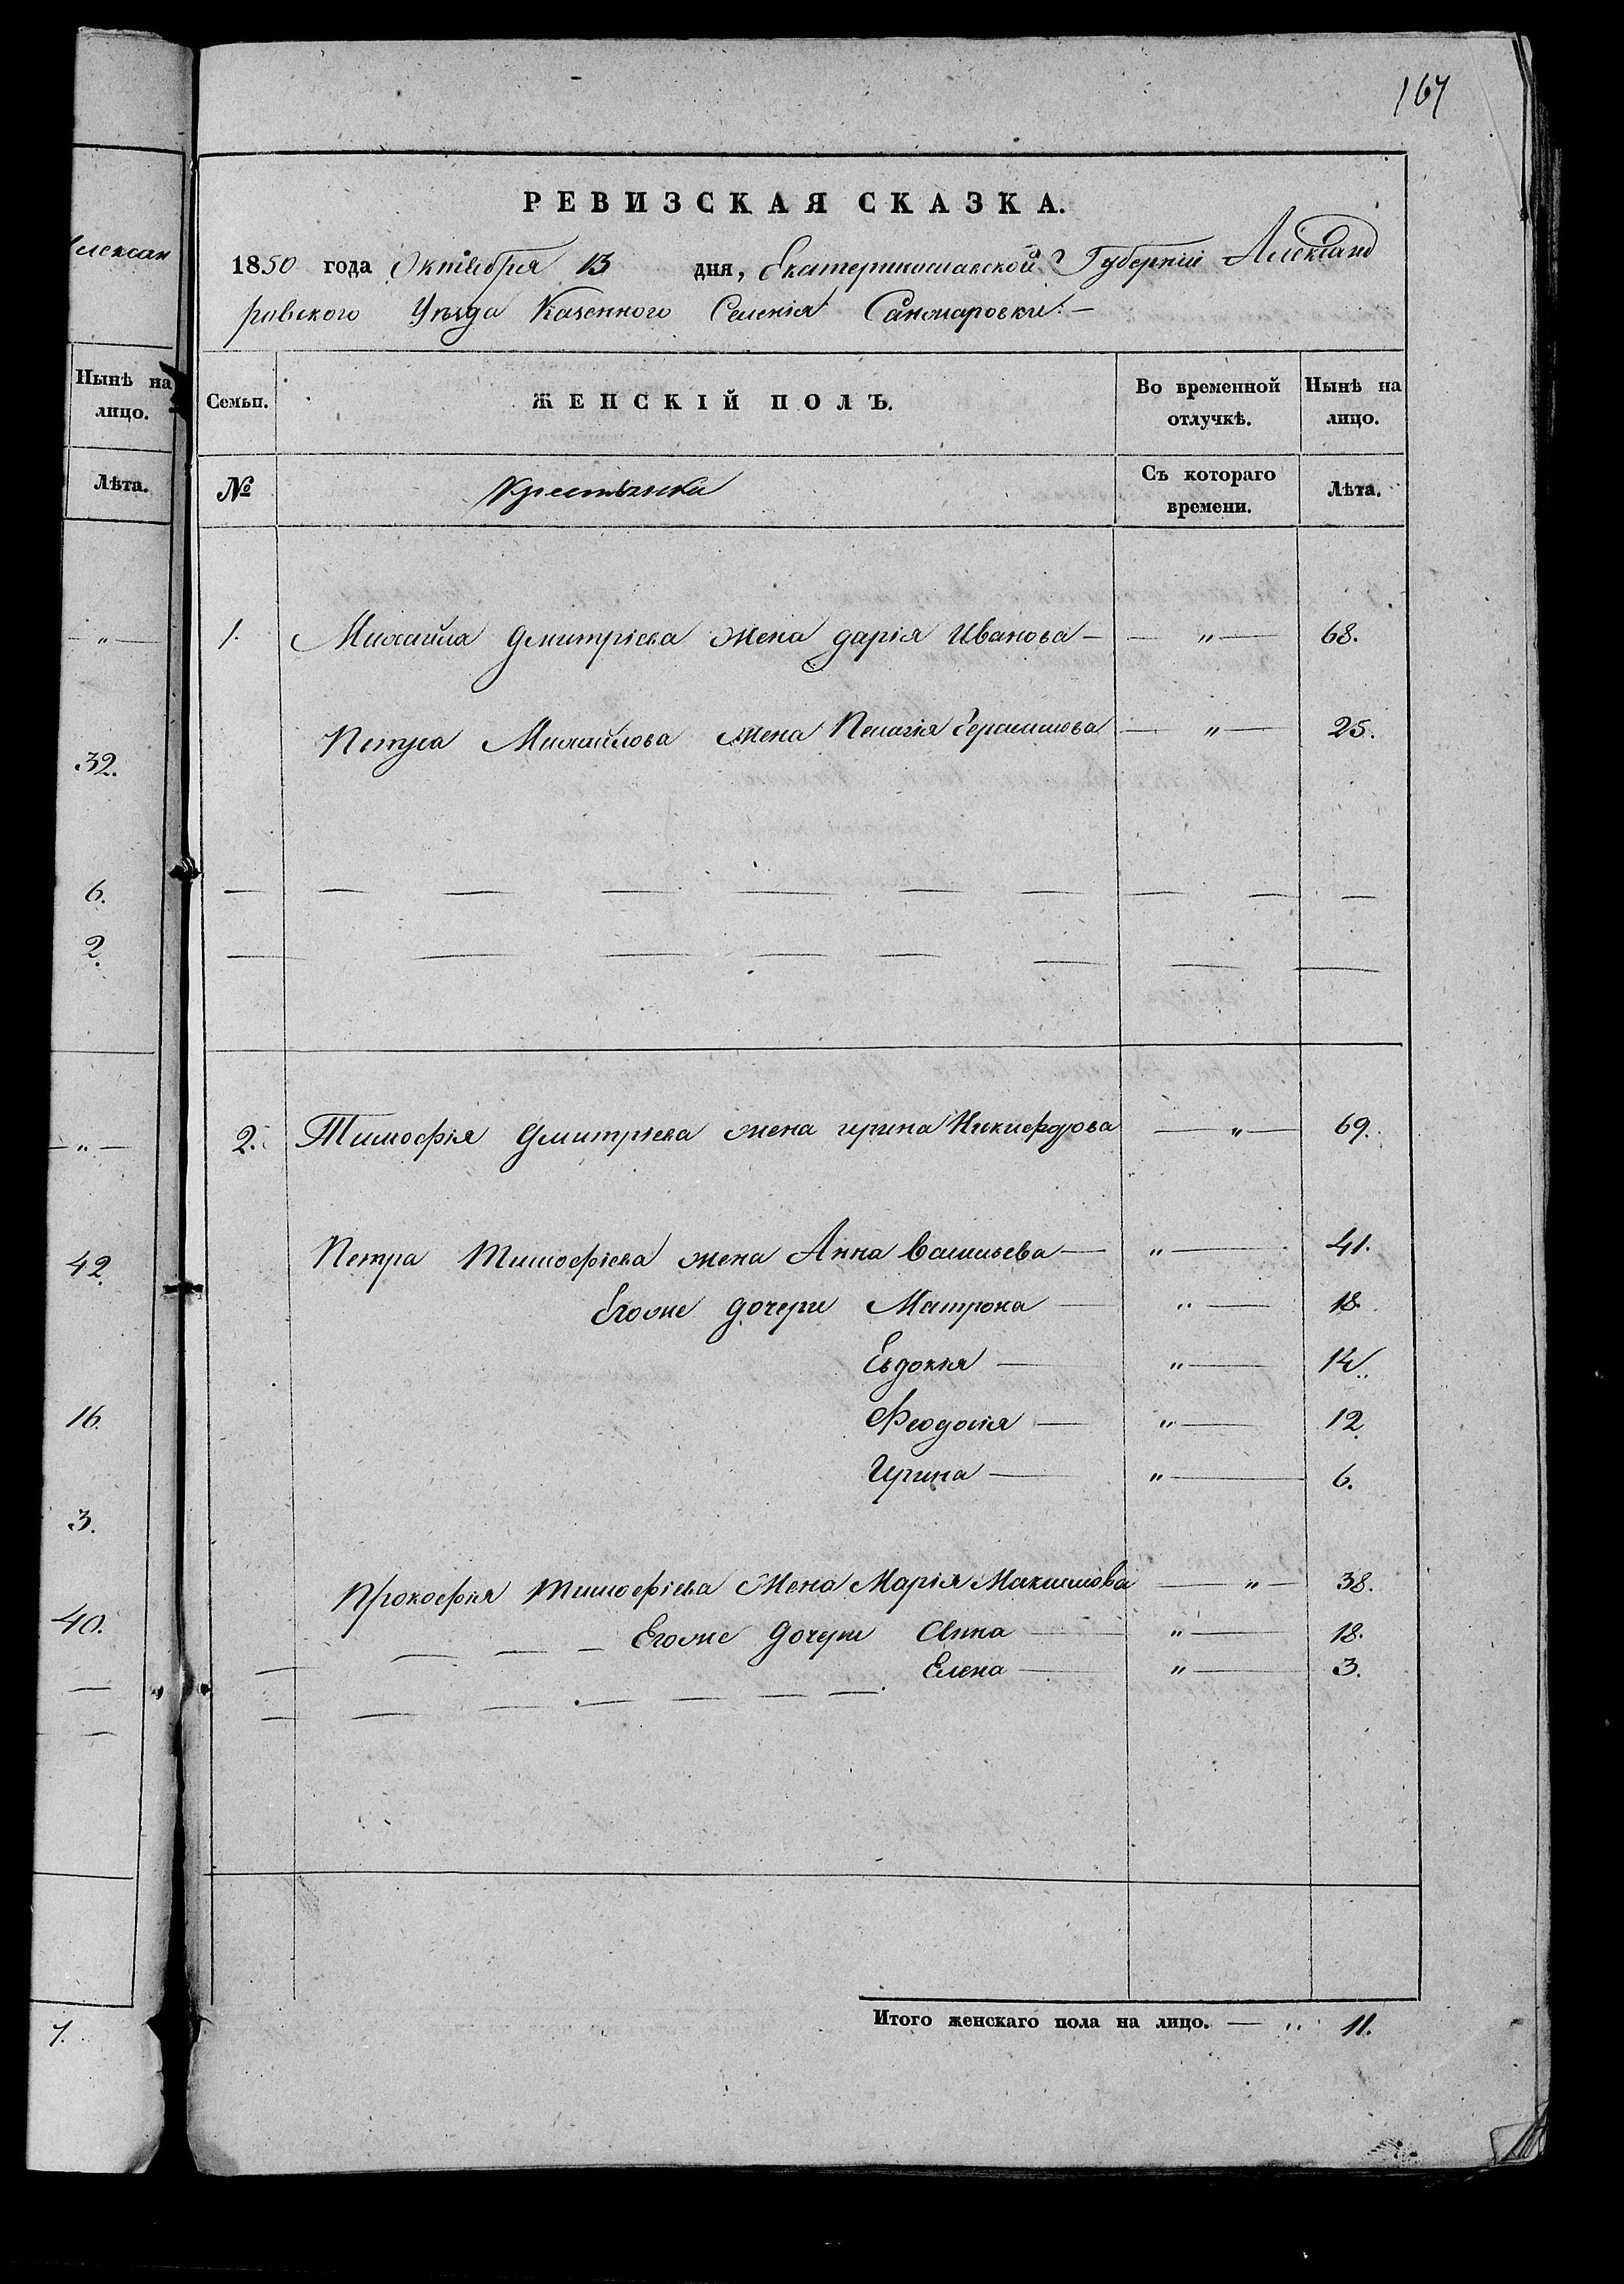 167
РЕВИЗСКАЯ СКАЗКА.
1850 года Октября 13 дня, Екатеринославской Губерніи Александ
ровского Уѣзда Казенного Селенія Санжаровки. —
Семьи. ЖЕНСКІЙ ПОЛЪ. Во временной отлучкѣ. Нынѣ на лицо.
№ Крестьянка Съ котораго времени. Лѣта.
1. Михайла Дмитріева жена дарія Иванова — — " — 68.
Петра Михайлова жена Пелагія Герасимова — " — 25.
2. Тимофія Дмитріева жена ирина Никифорова — " — 69.
Петра Тимофіева жена Анна Васильева — " — 41.
Егоже дочери Матрона — " — 18.
Евдокія — " — 14.
Феодосія — " — 12.
Ирина — " — 6.
Прокофія Тимофіева жена Марія Максимова — " — 38.
Егоже дочери Анна — " — 18.
Елена — " — 3.
Итого женскаго пола на лицо. — " 11.
Алексан
Нынѣ на
лицо.
Лѣта.
— " —
32.
6.
2.
— " —
42.
16.
3.
40.
7.